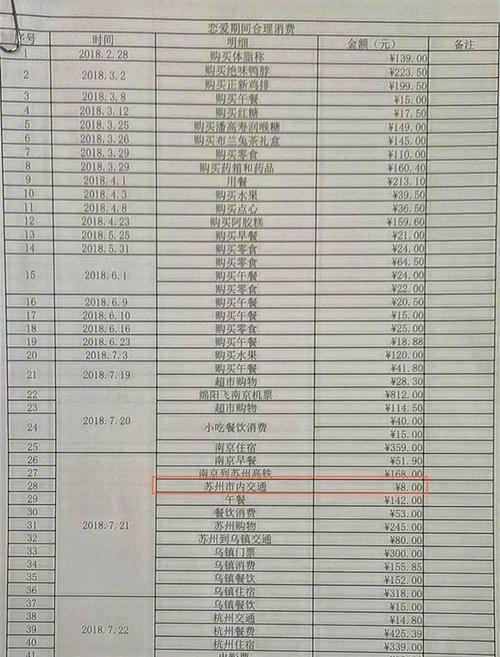 恋爱期间合理消费
序号 时间 明细 金额（元） 备注
1 2018.2.28 购买体脂称 ¥139.00
2 2018.3.2 购买绝味鸭脖 ¥223.50
购买正新鸡排 ¥199.50
3 2018.3.8 购买午餐 ¥15.00
4 2018.3.12 购买红糖 ¥17.50
5 2018.3.25 购买潘高寿润喉糖 ¥149.00
6 2018.3.26 购买布兰兔茶礼盒 ¥145.00
7 2018.3.29 购买零食 ¥110.00
8 2018.3.29 购买药箱和药品 ¥160.40
9 2018.4.1 用餐 ¥213.10
10 2018.4.3 购买水果 ¥39.50
11 2018.4.8 购买点心 ¥36.50
12 2018.4.23 购买阿胶糕 ¥159.60
13 2018.5.25 购买早餐 ¥21.00
14 2018.5.31 购买零食 ¥24.00
15 2018.6.1 购买零食 ¥64.50
购买午餐 ¥24.00
购买零食 ¥22.00
16 2018.6.9 购买午餐 ¥20.50
17 2018.6.10 购买午餐 ¥15.00
18 2018.6.16 购买零食 ¥25.00
19 2018.6.23 购买午餐 ¥18.88
20 2018.7.3 购买水果 ¥120.00
21 2018.7.19 购买午餐 ¥41.80
超市购物 ¥28.30
22 2018.7.20 绵阳飞南京机票 ¥812.00
23 超市购物 ¥114.50
24 小吃餐饮消费 ¥40.00
¥15.00
25 南京住宿 ¥359.00
26 2018.7.21 南京早餐 ¥51.90
27 南京到苏州高铁 ¥168.00
28 苏州市内交通 ¥8.00
29 午餐 ¥142.00
30 餐饮消费 ¥53.00
31 苏州购物 ¥245.00
32 苏州到乌镇交通 ¥80.00
33 乌镇门票 ¥300.00
34 乌镇消费 ¥155.85
35 乌镇餐饮 ¥152.00
36 乌镇住宿 ¥318.00
37 2018.7.22 乌镇餐饮 ¥15.00
38 杭州交通 ¥14.80
39 杭州餐费 ¥425.39
40 杭州住宿 ¥339.00
41